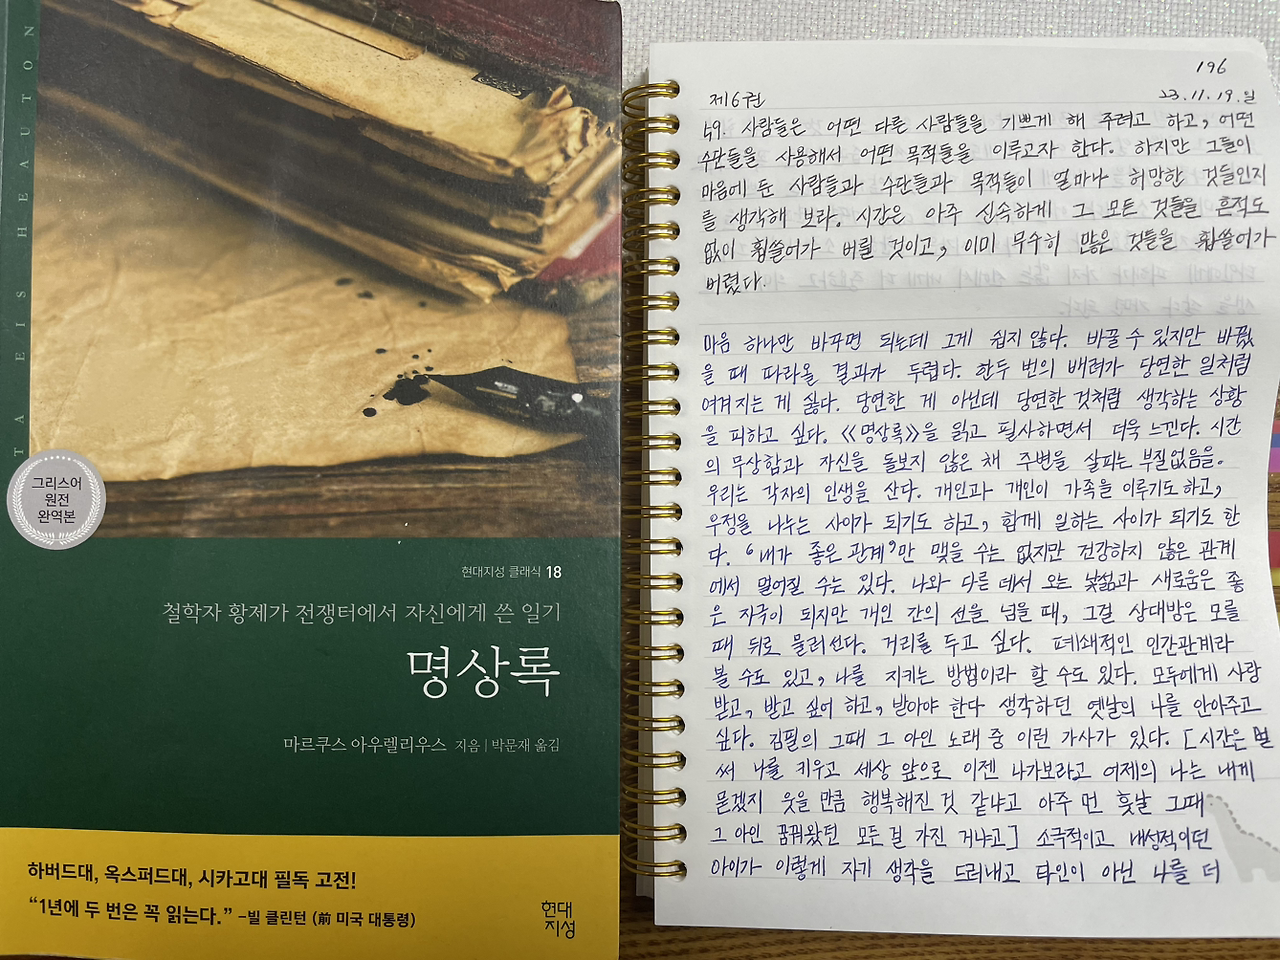 TA EIS HEAUTON
그리스어
원전
완역본
현대지성 클래식 18
철학자 황제가 전쟁터에서 자신에게 쓴 일기
명상록
마르쿠스 아우렐리우스 지음 | 박문재 옮김
하버드대, 옥스퍼드대, 시카고대 필독 고전!
“1년에 두 번은 꼭 읽는다.” –빌 클린턴 (前 미국 대통령)
현대
지성
196
제6권
23.11.19.일
59. 사람들은 어떤 다른 사람들을 기쁘게 해 주려고 하고, 어떤
수단들을 사용해서 어떤 목적들을 이루고자 한다. 하지만 그들이
마음에 둔 사람들과 수단들과 목적들이 얼마나 허망한 것들인지
를 생각해 보라. 시간은 아주 신속하게 그 모든 것들을 흔적도
없이 휩쓸어가 버릴 것이고, 이미 무수히 많은 것들을 휩쓸어가
버렸다.
마음 하나만 바꾸면 되는데 그게 쉽지 않다. 바꿀 수 있지만 바꿨
을 때 따라올 결과가 두렵다. 한두 번의 배려가 당연한 일처럼
여겨지는 게 싫다. 당연한 게 아닌데 당연한 것처럼 생각하는 상황
을 피하고 싶다. 《명상록》을 읽고 필사하면서 더욱 느낀다. 시간
의 무상함과 자신을 돌보지 않은 채 주변을 살피는 부질없음을.
우리는 각자의 인생을 산다. 개인과 개인이 가족을 이루기도 하고,
우정을 나누는 사이가 되기도 하고, 함께 일하는 사이가 되기도 한
다. ‘내가 좋은 관계’만 맺을 수는 없지만 건강하지 않은 관계
에서 멀어질 수는 있다. 나와 다른 데서 오는 낯섦과 새로움은 좋
은 자극이 되지만 개인 간의 선을 넘을 때, 그걸 상대방은 모를
때 뒤로 물러선다. 거리를 두고 싶다. 폐쇄적인 인간관계라
볼 수도 있고, 나를 지키는 방법이라 할 수도 있다. 모두에게 사랑
받고, 받고 싶어 하고, 받아야 한다 생각하던 옛날의 나를 안아주고
싶다. 김필의 그때 그 아인 노래 중 이런 가사가 있다. [시간은 벌
써 나를 키우고 세상 앞으로 이젠 나가보라고 어제의 나는 내게
묻겠지 웃을 만큼 행복해진 것 같냐고 아주 먼 훗날 그때
그 아인 꿈꿔왔던 모든 걸 가진 거냐고] 소극적이고 내성적이던
아이가 이렇게 자기 생각을 드러내고 타인이 아닌 나를 더